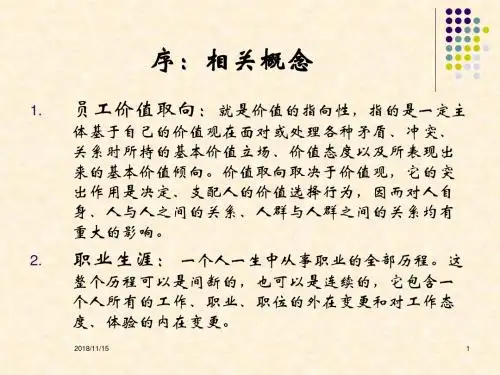 序：相关概念
1. 员工价值取向：就是价值的指向性，指的是一定主
体基于自己的价值观在面对或处理各种矛盾、冲突、
关系时所持的基本价值立场、价值态度以及所表现出
来的基本价值倾向。价值取向取决于价值观，它的突
出作用是决定、支配人的价值选择行为，因而对人自
身、人与人之间的关系、人群与人群之间的关系均有
重大的影响。
2. 职业生涯： 一个人一生中从事职业的全部历程。这
整个历程可以是间断的，也可以是连续的，它包含一
个人所有的工作、职业、职位的外在变更和对工作态
度、体验的内在变更。
2018/11/15 1